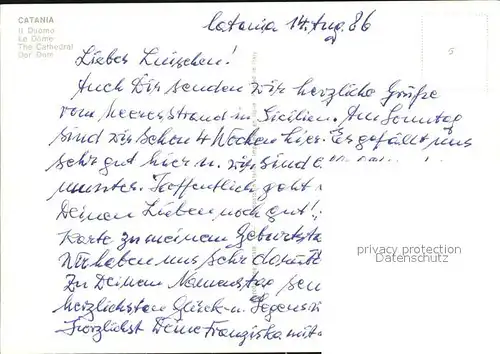 CATANIA
Il Duomo
Le Dôme
The Cathedral
Der Dom
Catania 14. Aug. 86
Liebes Luischen!
Auch Dir senden wir herzliche Grüße
vom Meeresstrand in Sizilien. Am Sonntag
sind wir schon 4 Wochen hier. Es gefällt uns
sehr gut hier u. wir sind
munter. Hoffentlich geht
Deinen Lieben noch gut!
Karte zu meinem Geburtsta
Wir haben uns sehr
Zu Deinem Namenstag sen
herzlichsten Glück- u. Segens
Herzlichst Deine Franziska mit
privacy protection
Datenschutz
6